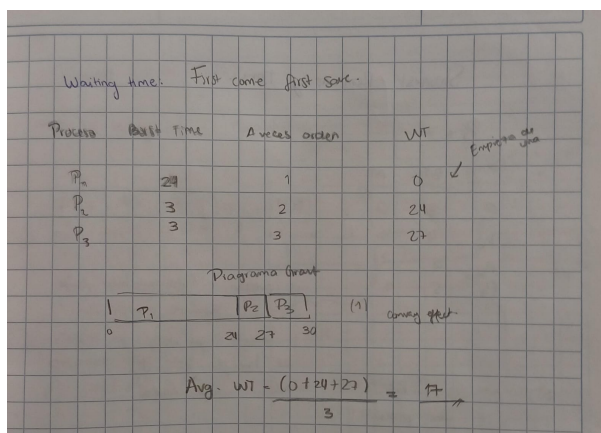 Waiting time: First come first save.
Proceso Burst Time A veces orden WT
Empieza de una
P1 24 1 0
P2 3 2 24
P3 3 3 27
Diagrama Grant
P1 P2 P3 (1) convoy effect
0 24 27 30
Avg. WT = (0+24+27) / 3 = 17